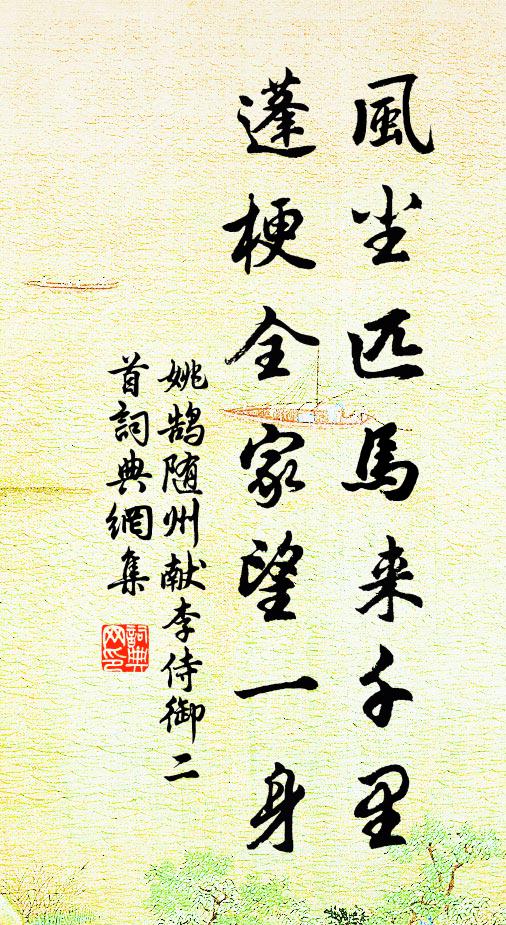 風尘匹馬来千里
蓬梗全家望一身
姚鵠随州献李侍御二
首詞典網集
詞典
网印